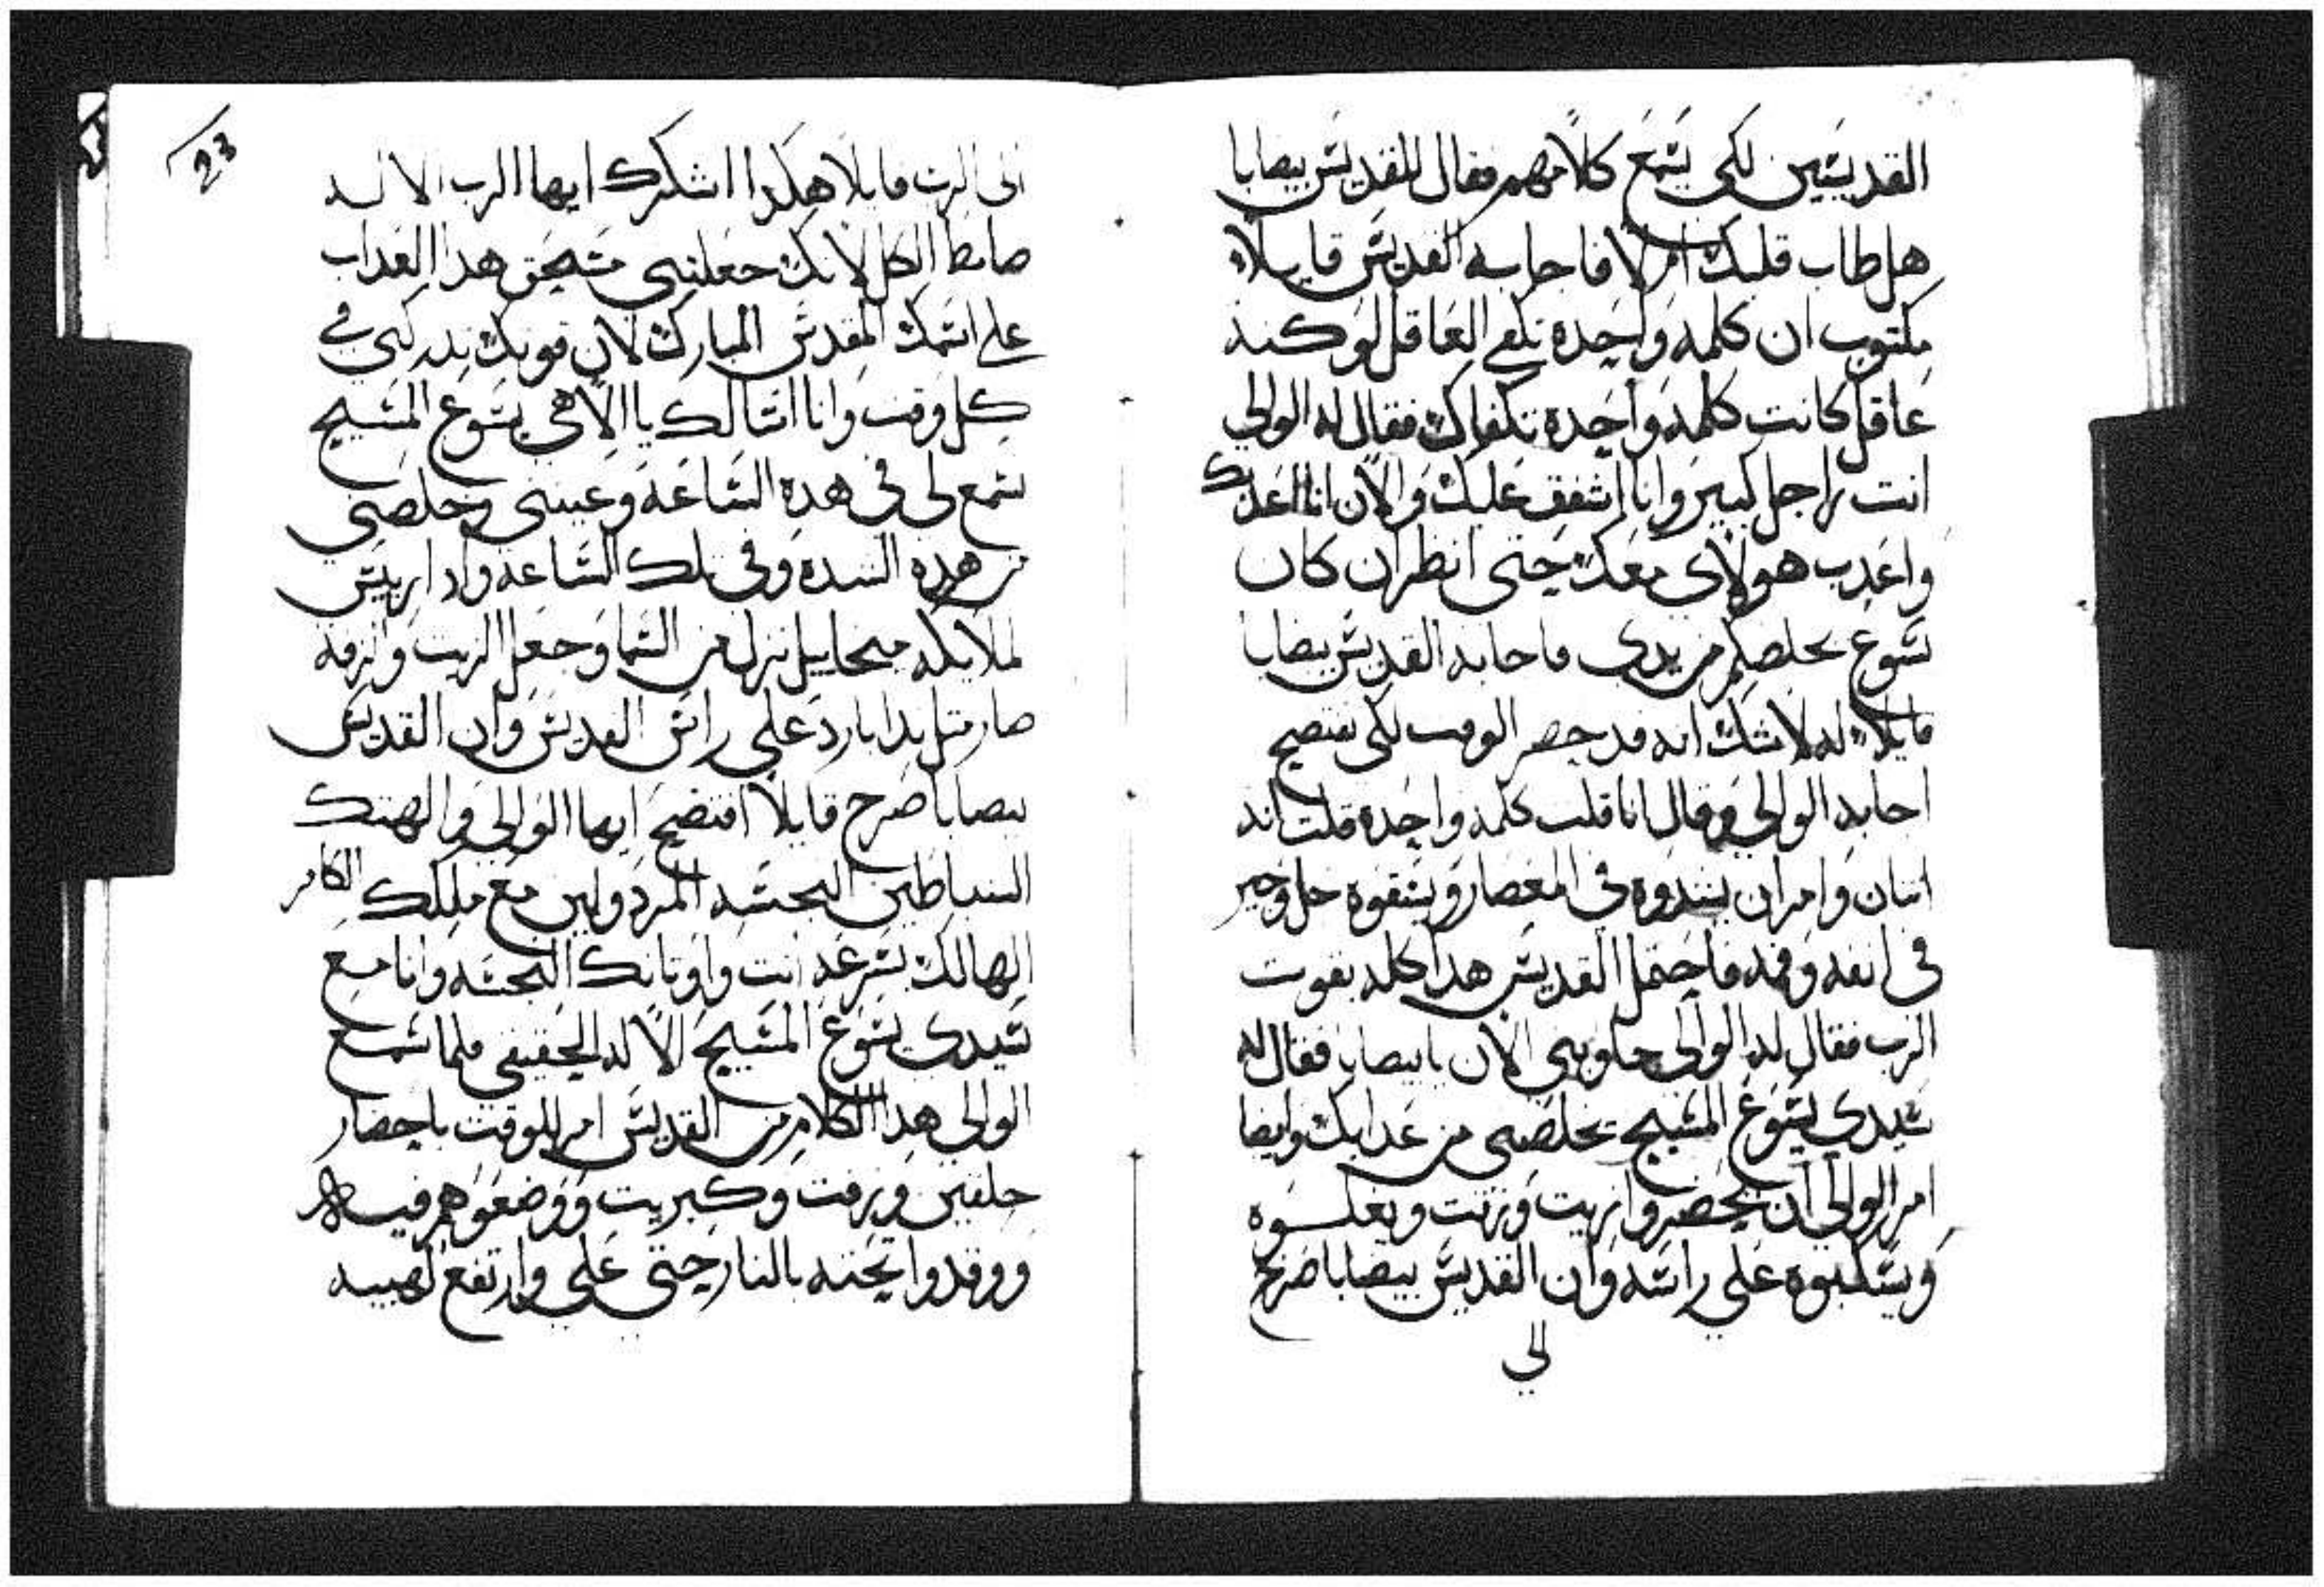 القديسين لكي يسمع كلامهم فقال للقديس بيصابا
هل طاب قلبك ام لا فاجابه القديس قايلاً
مكتوب ان كلمه واحده تكفي العاقل لو كنت
عاقل كانت كلمه واحدة تكفاك فقال له الوالي
انت راجل كبير وانا اشفق عليك والان انا اعذبك
واعذب هولاى معك حتى انظر ان كان
يسوع يخلصكم من يدى فاجابه القديس بيصابا
قايلاً له لا شك انه قد حضر الوقت لكي تفتضح
اجابه الوالي وقال انا قلت كلمه واحده قلت انت
اتنان وامر ان يشدوه في المعصار ويسقوه خل وجير
في انفه وفمه فاحتمل القديس هدا كله بقوت
الرب فقال له الوالي جاوبني الان يا بيصابا فقال له
سيدي يسوع المسيح يخلصني من عدابك وايضا
امر الوالي ان يحضروا زيت وزفت ويغلـوه
ويسكبوه على راسه وان القديس بيصابا صرخ
الي
23
الى الرب قايلاً هكدا اشكرك ايها الرب الالـه
ضابط الكل لانك جعلتني مستحق هدا العداب
على اسمك المقدس المبارك لان قوتك تدركني في
كل وقت وانا اسالك يا الاهي يسوع المسيح
تسمع لي في هده الساعه وعينني وخلصني
من هده الشدة وفي تلك الساعه واد اريس
لملايكه ميخاييل نزل من السما وجعل الزيت والزفت
صار متل ندا بارد على راس القديس وان القديس
بيصابا صرخ قايلاً افتضح ايها الوالي والهتك
الشياطين النجسه المردولين مع ملكك الكافر
الهالك بسرعه انت واوتانك النجسه وانا مع
سيدي يسوع المسيح الاله الحقيقي فلما سمع
الوالي هدا الكلام من القديس امر للوقت باحضار
حلقين وزفت وكبريت ووضعوهم فيـه
ووقدوا تحته بالنار حتى على وارتفع لهيبه